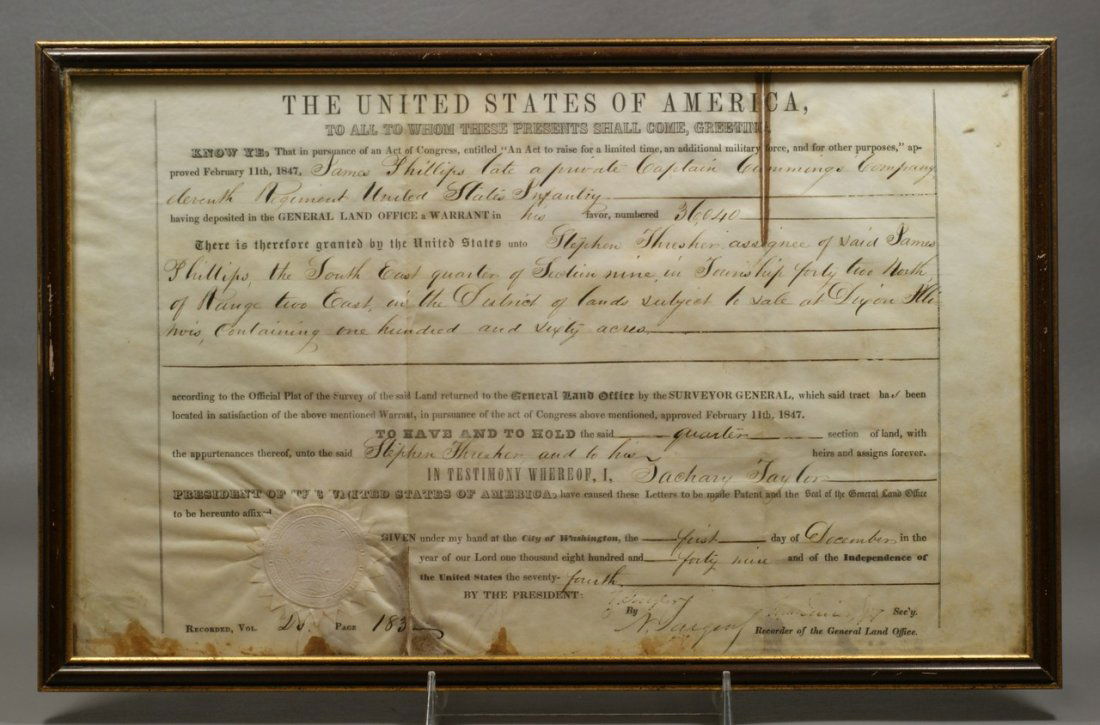 THE UNITED STATES OF AMERICA,
TO ALL TO WHOM THESE PRESENTS SHALL COME, GREETING
KNOW YE, That in pursuance of an Act of Congress, entitled "An Act to raise for a limited time, an additional military force, and for other purposes," ap-
proved February 11th, 1847, James Phillips late a private Captain Cummings Company
eleventh Regiment United States Infantry
having deposited in the GENERAL LAND OFFICE a WARRANT in his favor, numbered 36,040
There is therefore granted by the United States unto Stephen Thresher assignee of said James
Phillips, the South East quarter of Section nine in Township forty two North,
of Range two East, in the District of lands subject to sale at Dixon Illi-
nois, Containing one hundred and sixty acres,
according to the Official Plat of the Survey of the said Land returned to the General Land Office by the SURVEYOR GENERAL, which said tract has been
located in satisfaction of the above mentioned Warrant, in pursuance of the act of Congress above mentioned, approved February 11th, 1847.
TO HAVE AND TO HOLD the said quarter section of land, with
the appurtenances thereof, unto the said Stephen Thresher and to his heirs and assigns forever.
IN TESTIMONY WHEREOF, I, Zachary Taylor
PRESIDENT OF THE UNITED STATES OF AMERICA, have caused these Letters to be made Patent and the Seal of the General Land Office
to be hereunto affixed
GIVEN under my hand at the City of Washington, the first day of December in the
year of our Lord one thousand eight hundred and forty nine and of the Independence of
the United States the seventy-fourth
BY THE PRESIDENT:
By Sec'y.
N. Sargent Recorder of the General Land Office.
RECORDED, VOL. PAGE 183